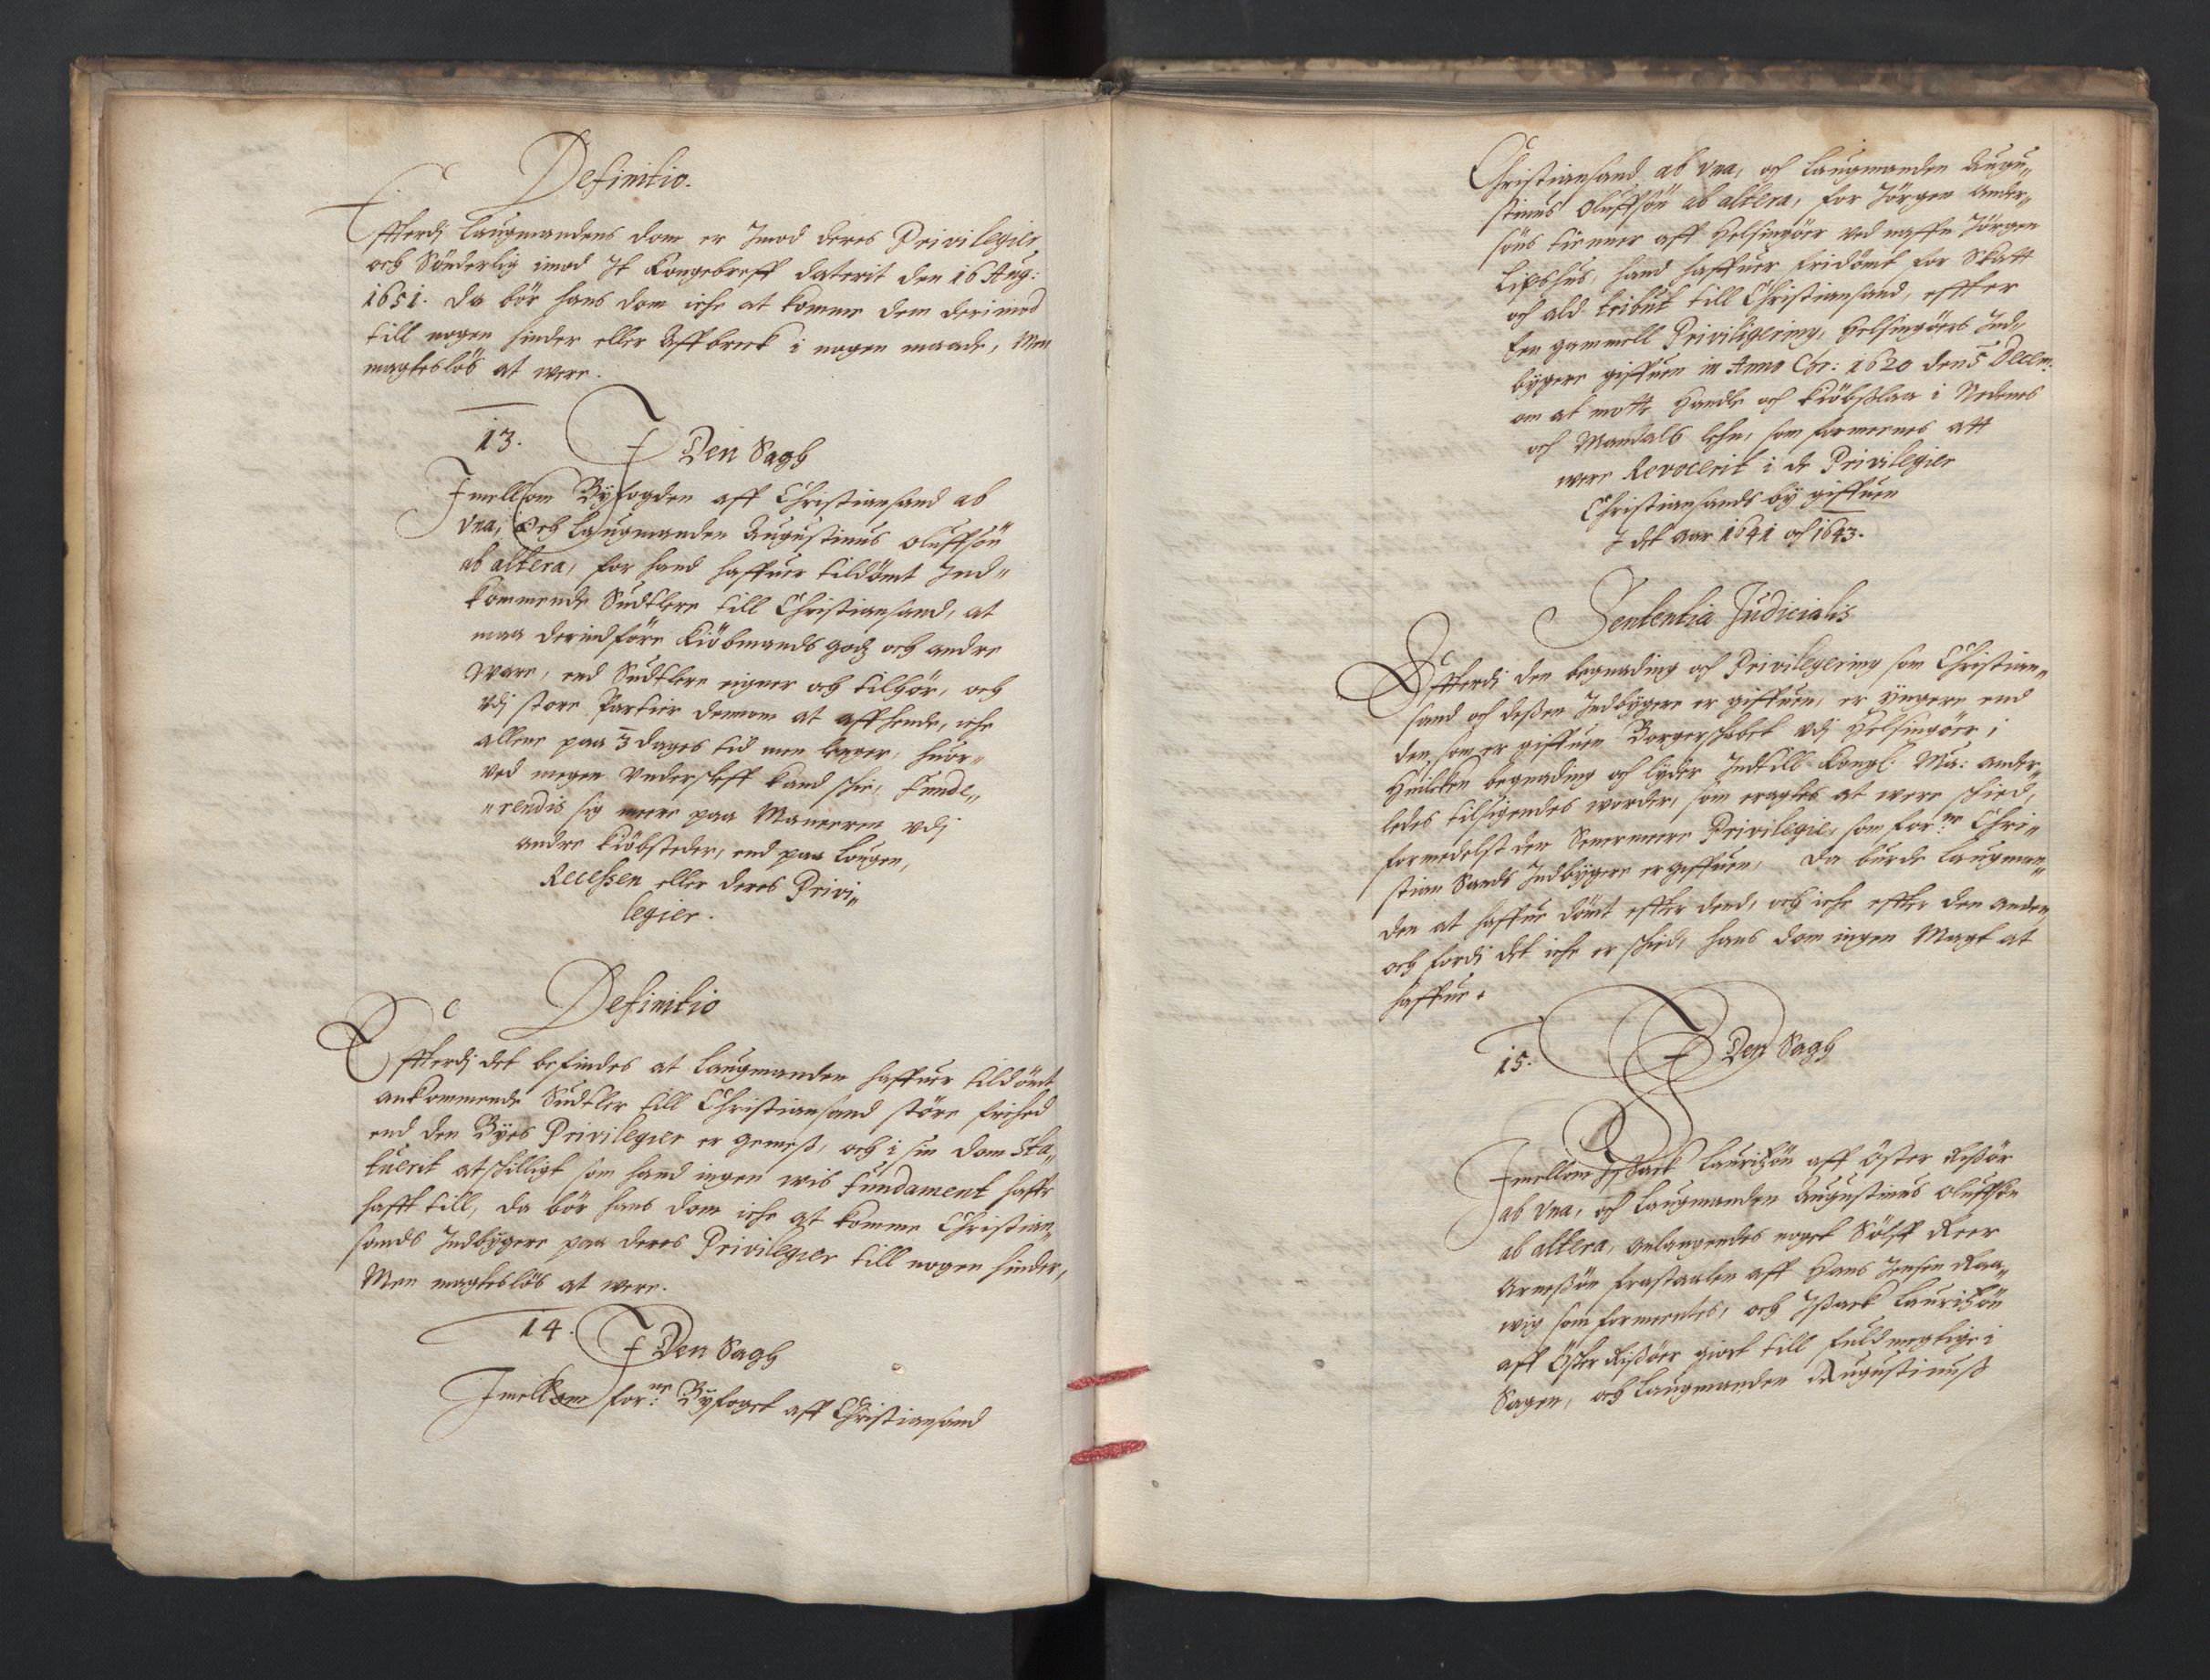 Definitio.
Effterdj Laugmandens dom er Imod deres Privilegier
och Sönderlig imod It Kongebreff daterit den 16 Aug:
1651. da bör hans dom iche at komme dem derimod
till nogen hinder eller Affbreck i nogen maade, Men
magteslös at were.
13. I Den Sagh
Imellom Byfogden aff Christiansand ab
vna, Och Laugmanden Augustinus Oluffsön
ab altera, for hand haffuer tildömt Ind„
kommende Sudtlere till Christiansand, at
maa derindföre Kiöbmands godz och andre
Ware, end Sudtlere eigner och tilhör, och
vdj store Partier dennom at affhende, iche
allene paa 3 dages tid men lenger, huor„
ved megen Vndersleff kand skie, funde„
„rendis sig mere paa Maneeren vdj
andre Kiöbsteder, end paa Lougen,
Recessen eller deres Privi„
legier.
Definitio
Effterdj det befindes at Laugmanden haffuer tildömt
ankommende Sudtler till Christiansand störe frihed
end den Byes Privilegier er gemeß, och i sin dom Sta„
tuerit atskilligt som hand ingen wis Fundament haffr
hafft till, da bör hans dom iche at komme Christian„
sands Indbygere paa deres Privilegier till nogen hinder,
Men magteslös at were.
14. I Den Sagh
Imellom forne: Byfoget aff Christiansand
Christiansand ab vna, och Laugmanden Augu„
stinus Oluffsön ab altera, for Jörgen Ander„
söns tienner aff Helsingöer ved naffn Jörgen
Lipshus, hand haffuer fridömt for Skatt
och ald tribut till Christiansand, effter
Een gammell Priviligering, Helsingöers Ind„
bygere giffuen in Anno Chr: 1620 den 5 Decem:
om at motte Handle och Kiöbslaa i Nedenes
och Mandals Lehn, som formeenes att
were Revocerit i de Privilegier
Christiansands by giffuen
I det aar 1641 och 1643.
Sententia Judicialis
Effterdj den begnading och Privilegering som Christian„
sand och deßen Indbygere er giffuen, er yngere end
den, som er giffuen Borgerskabet vdj Helsingöer i
Huilcken begnading och lyder Indtill Kongl: Ma: ander„
ledes tilsigendes worder, som eragtes at were skied,
formedelst den Senermeere Privilegie, som forne: Chri„
stian Sands Indbygere er giffuen, da burde Laugman„
den at haffue dömt effter dend, och iche effter den anden,
och fordj det iche er skied, hans dom ingen Magt at
haffue.
15. I Den Sagh
Imellom Isaack Lauritzön aff Öster Risöer
ab vna, och Laugmanden Augustinus Oluffsön
ab altera, anlangendes noget Sölff Reer
Arnesön frastaalen aff Hans Jensen Raa„
wig som formeentes, och Isaack Lauritzön
aff Öster Risöer giort till fuldmegtige i
Sagen, och Laugmanden Augustinuß